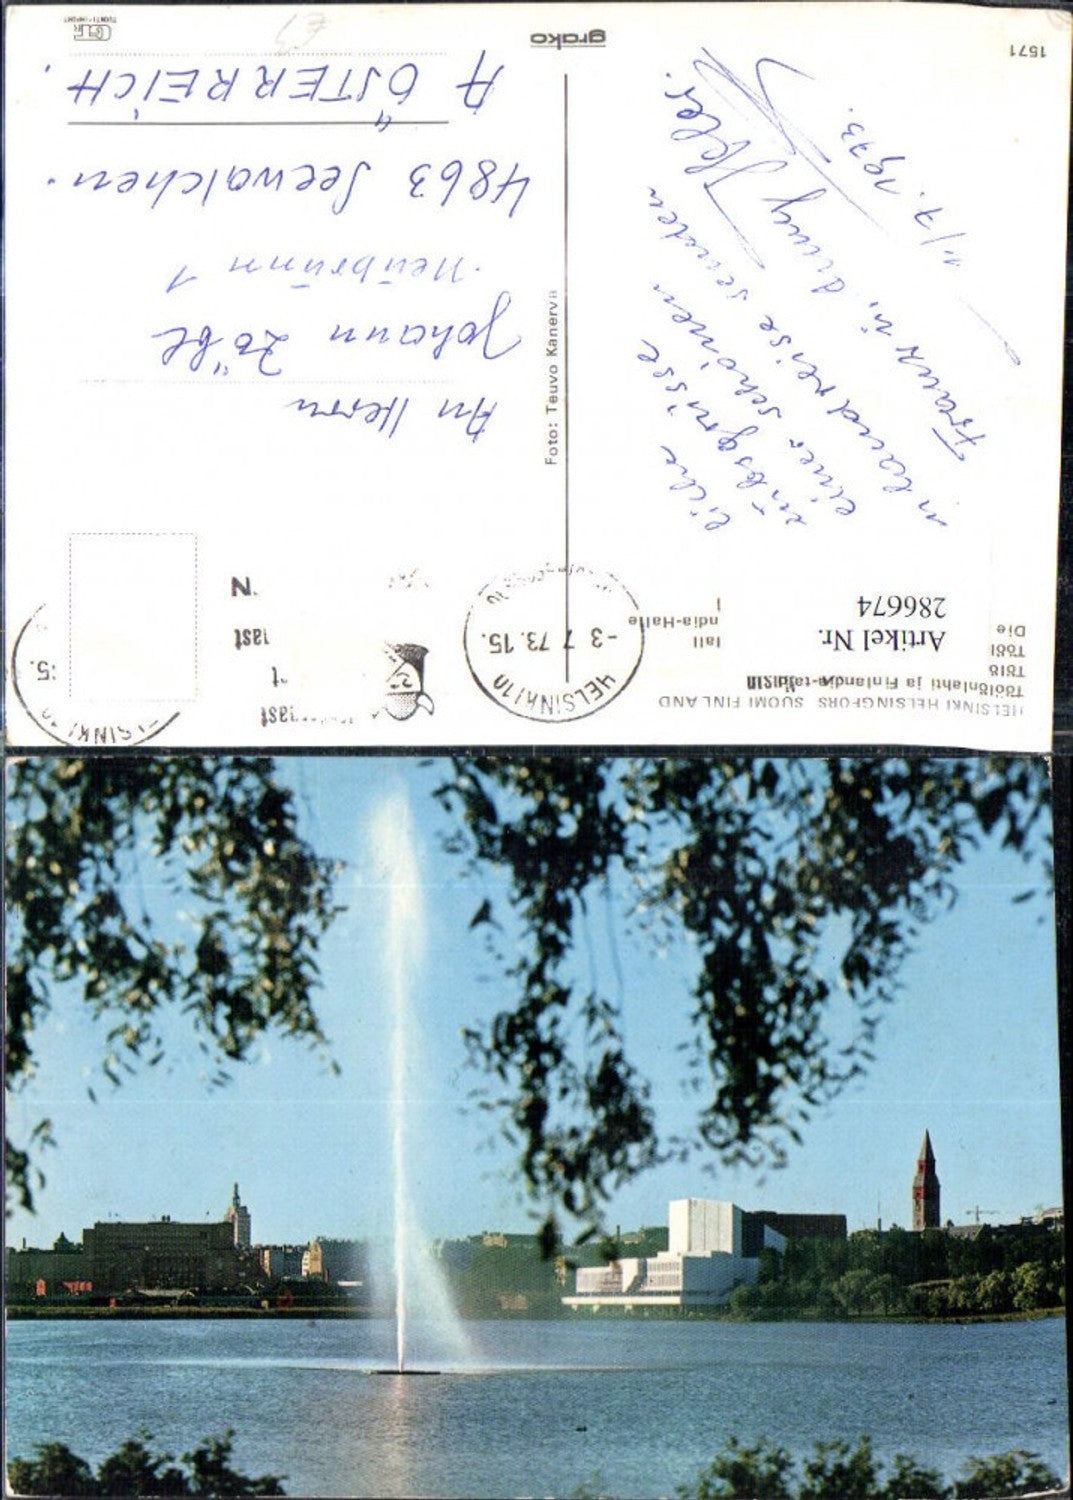 HELSINKI HELSINGFORS SUOMI FINLAND
Töölönlahti ja Finlandia-talo
Tölö
Tööl
Die
lall
ndia-Halle
Artikel Nr.
286674
HELSINKI 10
-3. 7. 73. 15.
ELSINKI 10
15.
N
Liebe
Urlaubsgrüsse
einer schönen
Nordlandreise senden
Franz u.
1/7. 1973.
An Herrn
Johann
Neubrunn 1
4863 Seewalchen.
A ÖSTERREICH.
Foto: Teuvo Kanerva
grako
1571